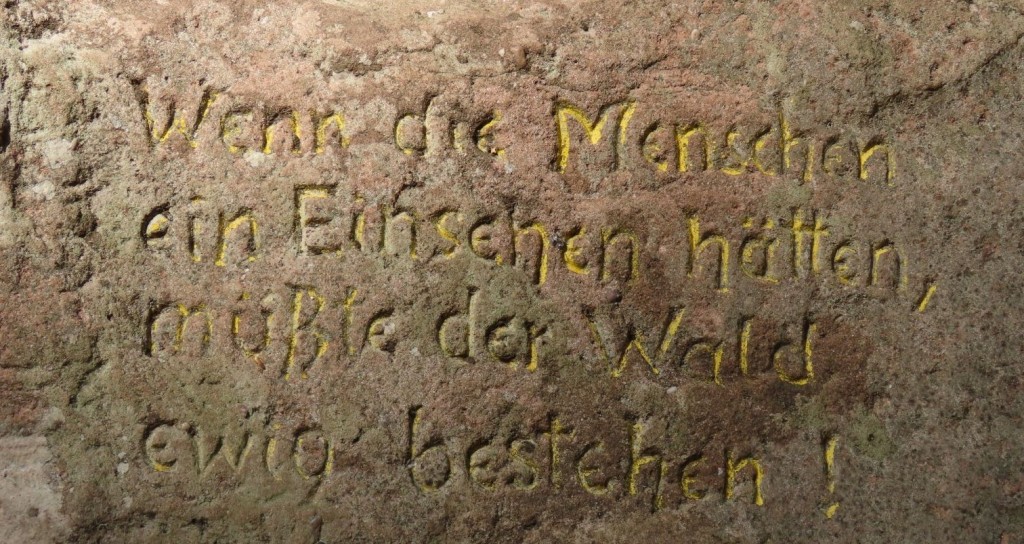 Wenn die Menschen
ein Einsehen hätten,
müßte der Wald
ewig bestehen !